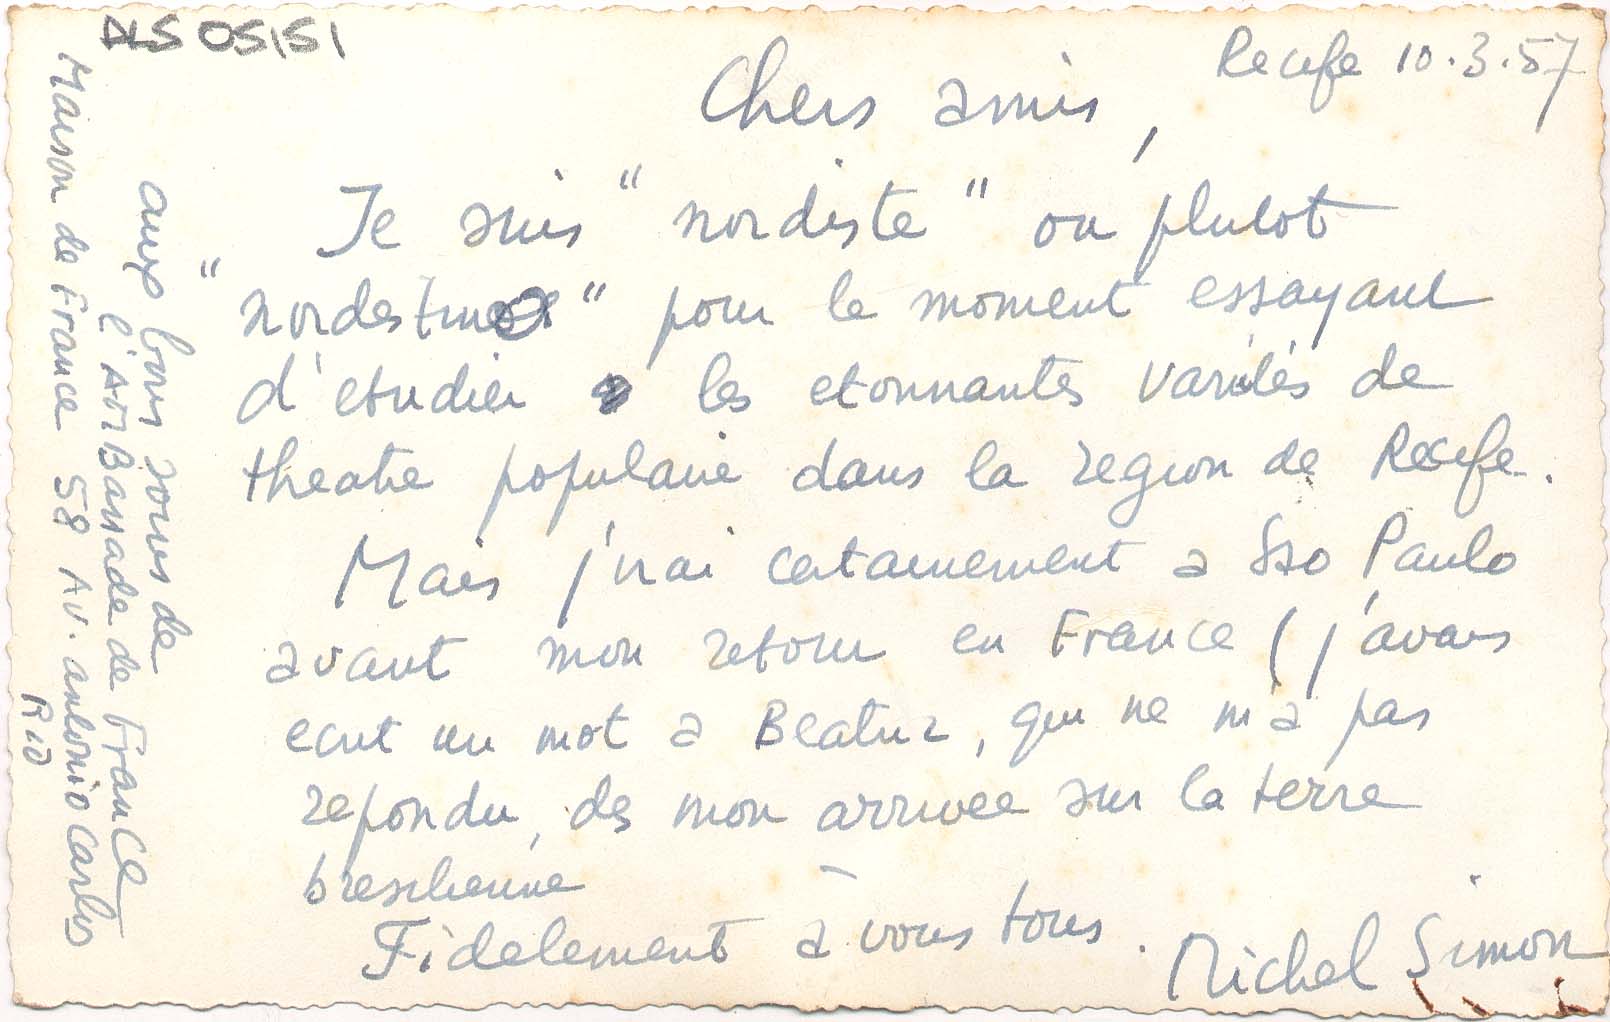 DLS 05151
Recife 10.3.57
Chers amis,
Je suis "nordiste" ou plutot
"nordestino" pour le moment essayant
d'etudier les etonnantes variétés de
theatre populaire dans la region de Recife.
Mais j'irai certainement a Sao Paulo
avant mon retour en France (j'avais
ecrit un mot a Beatriz, qui ne m'a pas
repondu, des mon arrivée sur la terre
bresilienne
Fidelement à vous tous.
Michel Simon
aux bons soins de
l'Ambassade de France
Maison de France 58 Av. antonio Carlos
Rio